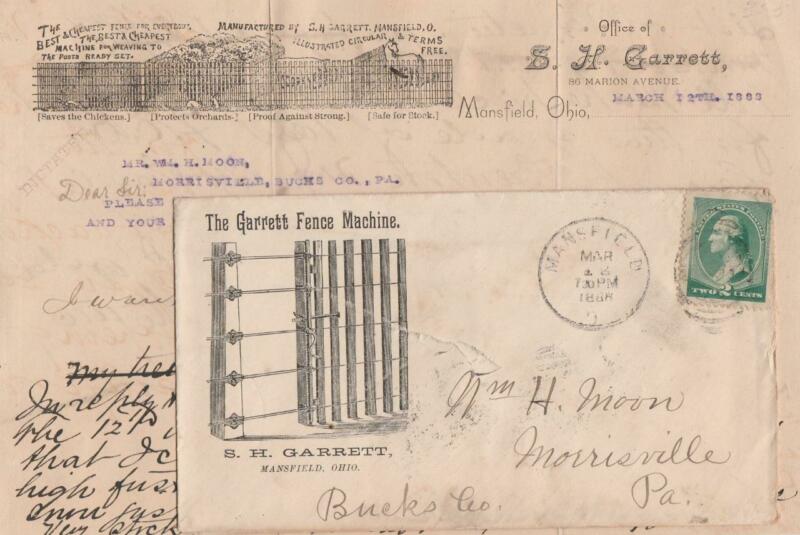 THE
BEST & CHEAPEST FENCE FOR EVERYBODY.
THE BEST & CHEAPEST
MACHINE FOR WEAVING TO
THE POSTS READY SET.
MANUFACTURED BY S. H. GARRETT, MANSFIELD, O.
ILLUSTRATED CIRCULAR & TERMS
FREE.
[Saves the Chickens.] [Protects Orchards.] [Proof Against Strong.] [Safe for Stock.]
Office of
S. H. Garrett,
86 MARION AVENUE.
Mansfield, Ohio,
MARCH 12TH. 1888
MR. WM. H. MOON,
Dear Sir:
MORRISVILLE, BUCKS CO., PA.
PLEASE
AND YOUR
I want
my
In reply
the 12th
that I
high
The Garrett Fence Machine.
S. H. GARRETT,
MANSFIELD, OHIO.
MANSFIELD
MAR
12
7 30 PM
1888
O.
UNITED STATES POSTAGE
TWO 2 CENTS
Wm H. Moon
Morrisville
Bucks Co. Pa.